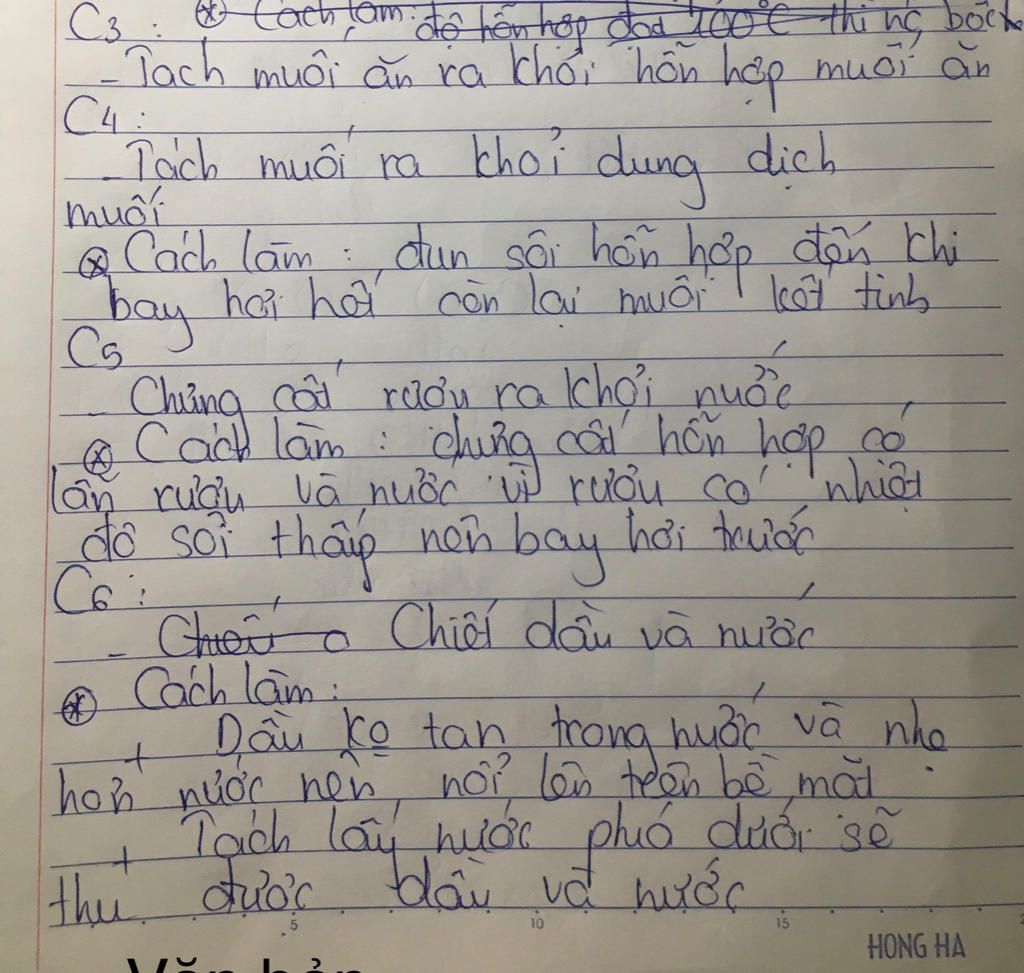 C3 : (*) Cách làm: độ hỗn hợp đoạ 100°C thì nc bốc
- Tách muối ăn ra khỏi hỗn hợp muối ăn
C4 :
- Tách muối ra khỏi dung dịch
muối
(*) Cách làm : đun sôi hỗn hợp đến khi
bay hơi hết còn lại muối kết tinh
C5
- Chưng cất rượu ra khỏi nước
(*) Cách làm : chưng cất hỗn hợp có
lẫn rượu và nước vì rượu có nhiệt
độ sôi thấp nên bay hơi trước
C6 :
- Chiết dầu và nước
(*) Cách làm :
+ Dầu ko tan trong nước và nhẹ
hơn nước nên nổi lên trên bề mặt
+ Tách lấy nước phía dưới sẽ
thu được dầu và nước
5 10 15
HONG HA
Văn bản